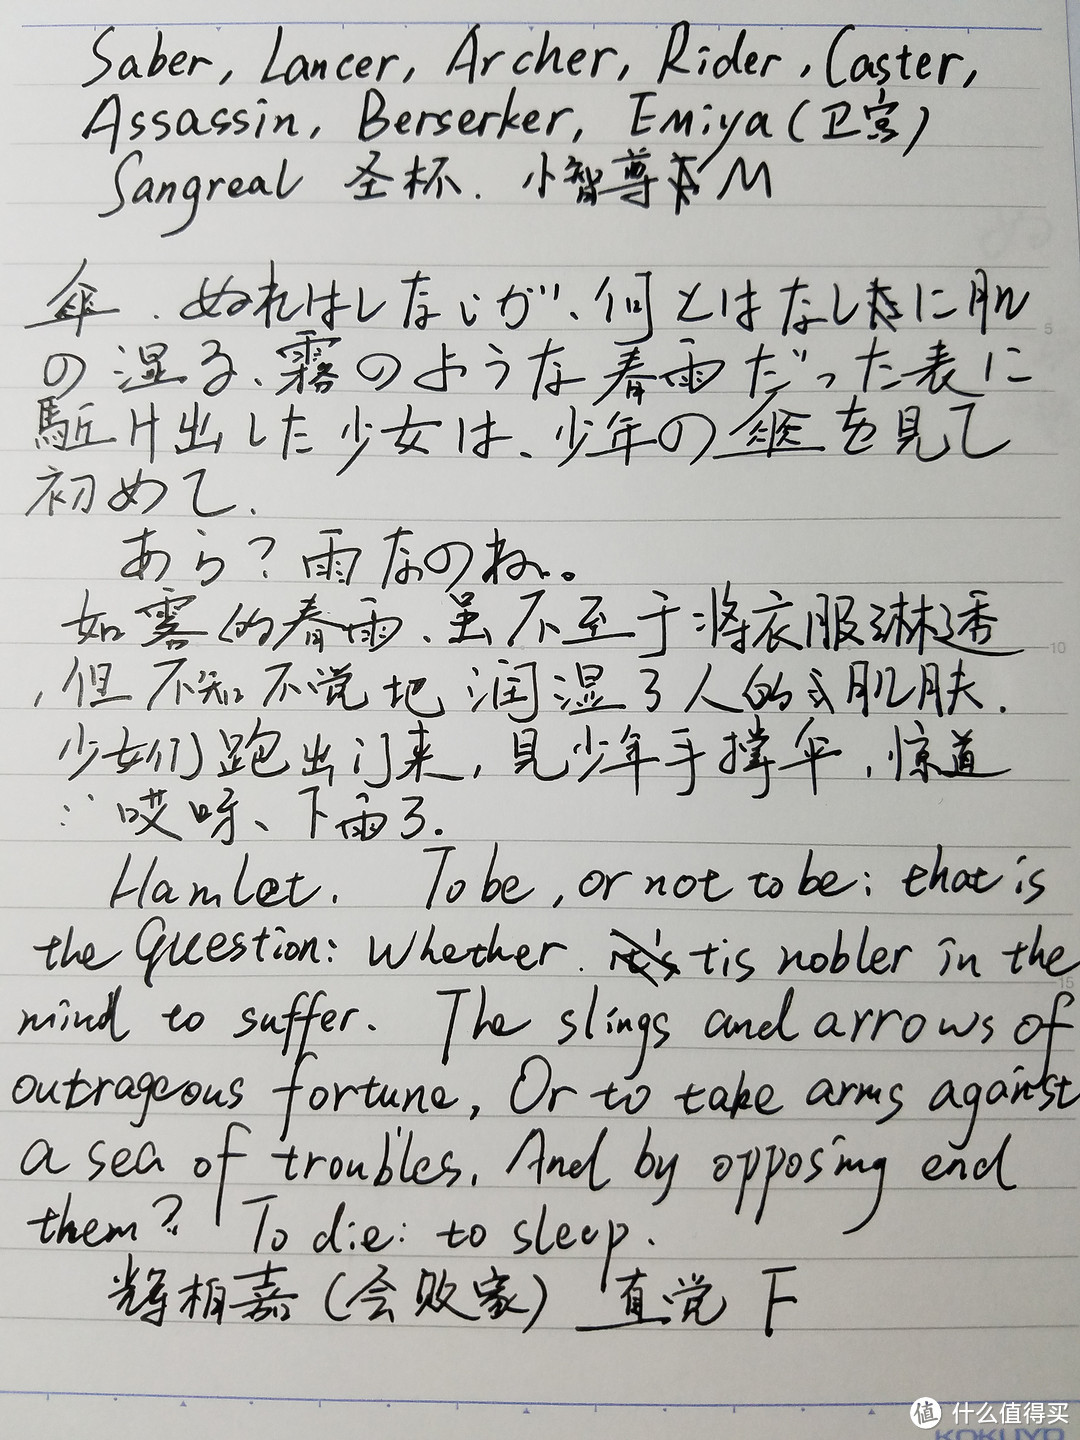 Saber, Lancer, Archer, Rider, Caster,
Assassin, Berserker, Emiya (卫宫)
Sangreal 圣杯. 小智尊 M
傘. ぬれはしないが、何とはなしに肌
の湿る、霧のような春雨だった表に
駈け出した少女は、少年の傘を見て
初めて.
あら?雨なのね。
如雾的春雨、虽不至于将衣服淋透
,但不知不觉地润湿了人的肌肤.
少女们跑出门来,見少年手撑伞,惊道
:哎呀、下雨了.
Hamlet. To be, or not to be: that is
the Question: Whether tis nobler in the
mind to suffer. The slings and arrows of
outrageous fortune, Or to take arms against
a sea of troubles, And by opposing end
them? To die: to sleep.
辉柏嘉(会败家) 直觉 F
5
10
15
值 什么值得买
KOKUYO